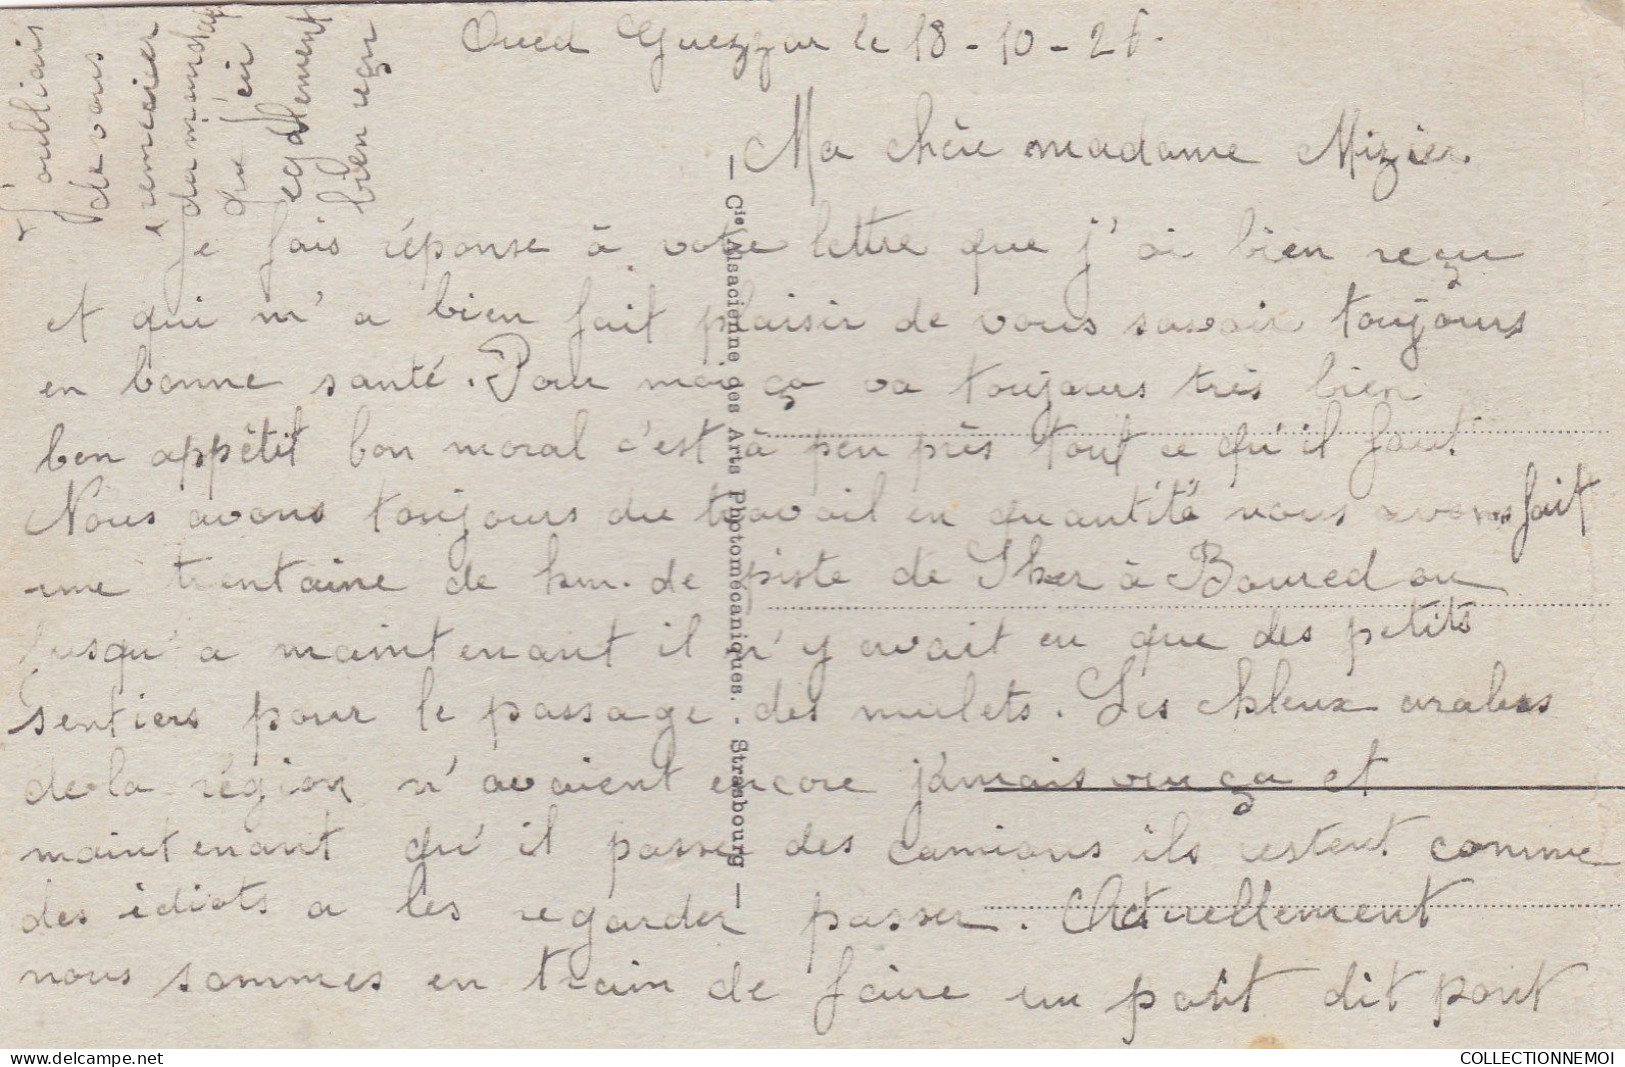 Oued Guezzar le 18-10-26.
Ma chère madame Mizier.
Je fais réponse à votre lettre que j'ai bien reçu
et qui m'a bien fait plaisir de vous savoir toujours
en bonne santé. Pour moi ça va toujours très bien
bon appétit bon moral c'est à peu près tout ce qu'il faut.
Nous avons toujours du travail en quantité nous avons fait
une trentaine de km. de piste de à Boured ou
jusqu'a maintenant il n'y avait eu que des petits
sentiers pour le passage des mulets. Les chleux arabes
de la région n'avaient encore jamais vu ça et
maintenant qu'il passe des camions ils restent comme
des idiots a les regarder passer. Actuellement
nous sommes en train de faire un petit dit pont
J'oubliais
de vous
remercier
du mandat
que j'ai
egalement
bien reçu
— Cie Alsacienne des Arts Photomécaniques. Strasbourg —
COLLECTIONNEMOI